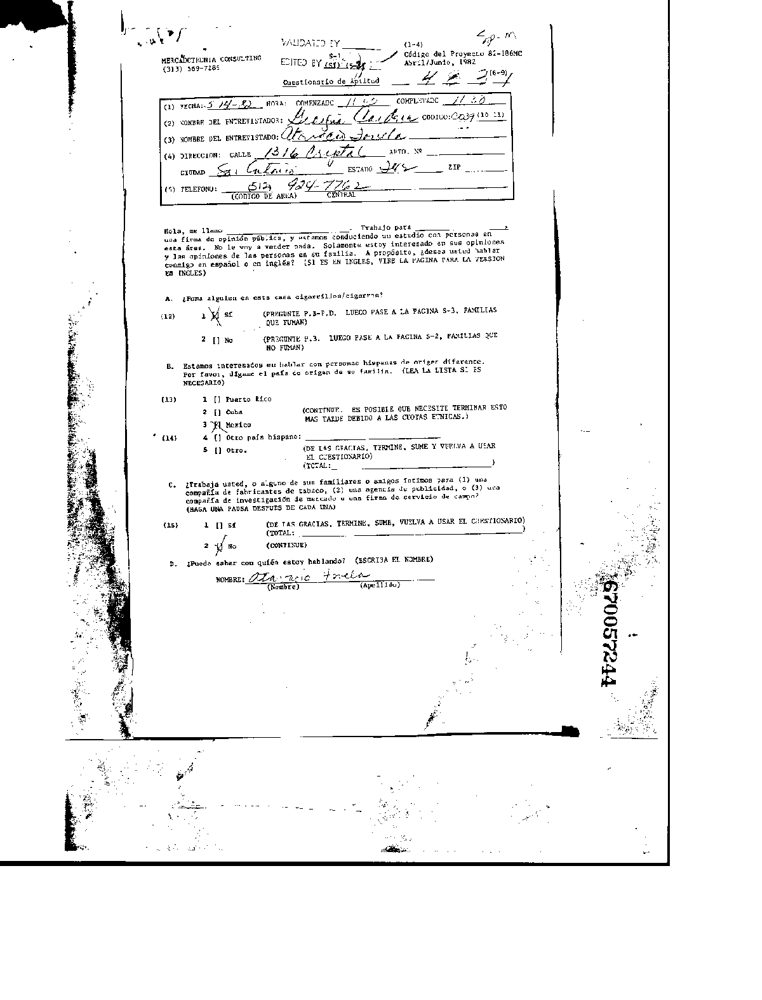 VALIDATED BY
(1-4)
MERCADOTECNIA CONSULTING
(313) 569-7285
S-1
EDITED BY
Código del Proyecto 82-186NC
Abril/Junio, 1982
Cuestionario de Aptitud
(6-9)
(1) FECHA: 5-14-82 HORA: COMENZADO COMPLETADO 11 30
(2) NOMBRE DEL ENTREVISTADOR: CODIGO: (10 11)
(3) NOMBRE DEL ENTREVISTADO:
(4) DIRECCION: CALLE 1316 Crystal APTO. Nº
CIUDAD San Antonio ESTADO ZIP
(5) TELEFONO: 512 924-7762
(CODIGO DE AREA) CENTRAL
Hola, me llamo . Trabajo para ,
una firma de opinión pública, y estamos conduciendo un estudio con personas en
esta área. No le voy a vender nada. Solamente estoy interesado en sus opiniones
y las opiniones de las personas en su familia. A propósito, ¿desea usted hablar
conmigo en español o en inglés? (SI ES EN INGLES, VIRE LA PAGINA PARA LA VERSION
EN INGLES)
A. ¿Fuma alguien en esta casa cigarrillos/cigarros?
(12) 1 [] Sí (PREGUNTE P.B-P.D. LUEGO PASE A LA PAGINA S-3, FAMILIAS
QUE FUMAN)
2 [] No (PREGUNTE P.B. LUEGO PASE A LA PAGINA S-2, FAMILIAS QUE
NO FUMAN)
B. Estamos interesados en hablar con personas hispanas de origen diferente.
Por favor, dígame el país de origen de su familia. (LEA LA LISTA SI ES
NECESARIO)
(13) 1 [] Puerto Rico
2 [] Cuba (CONTINUE. ES POSIBLE QUE NECESITE TERMINAR ESTO
MAS TARDE DEBIDO A LAS CUOTAS ETNICAS.)
3 [] Mexico
(14) 4 [] Otro país hispano:
5 [] Otro. (DE LAS GRACIAS, TERMINE, SUME Y VUELVA A USAR
EL CUESTIONARIO)
(TOTAL: )
C. ¿Trabaja usted, o alguno de sus familiares o amigos íntimos para (1) una
compañía de fabricantes de tabaco, (2) una agencia de publicidad, o (3) una
compañía de investigación de mercado o una firma de servicio de campo?
(HAGA UNA PAUSA DESPUES DE CADA UNA)
(15) 1 [] Sí (DE LAS GRACIAS, TERMINE, SUME, VUELVA A USAR EL CUESTIONARIO)
(TOTAL: )
2 [] No (CONTINUE)
D. ¿Puedo saber con quién estoy hablando? (ESCRIBA EL NOMBRE)
NOMBRE:
(Nombre) (Apellido)
670057244